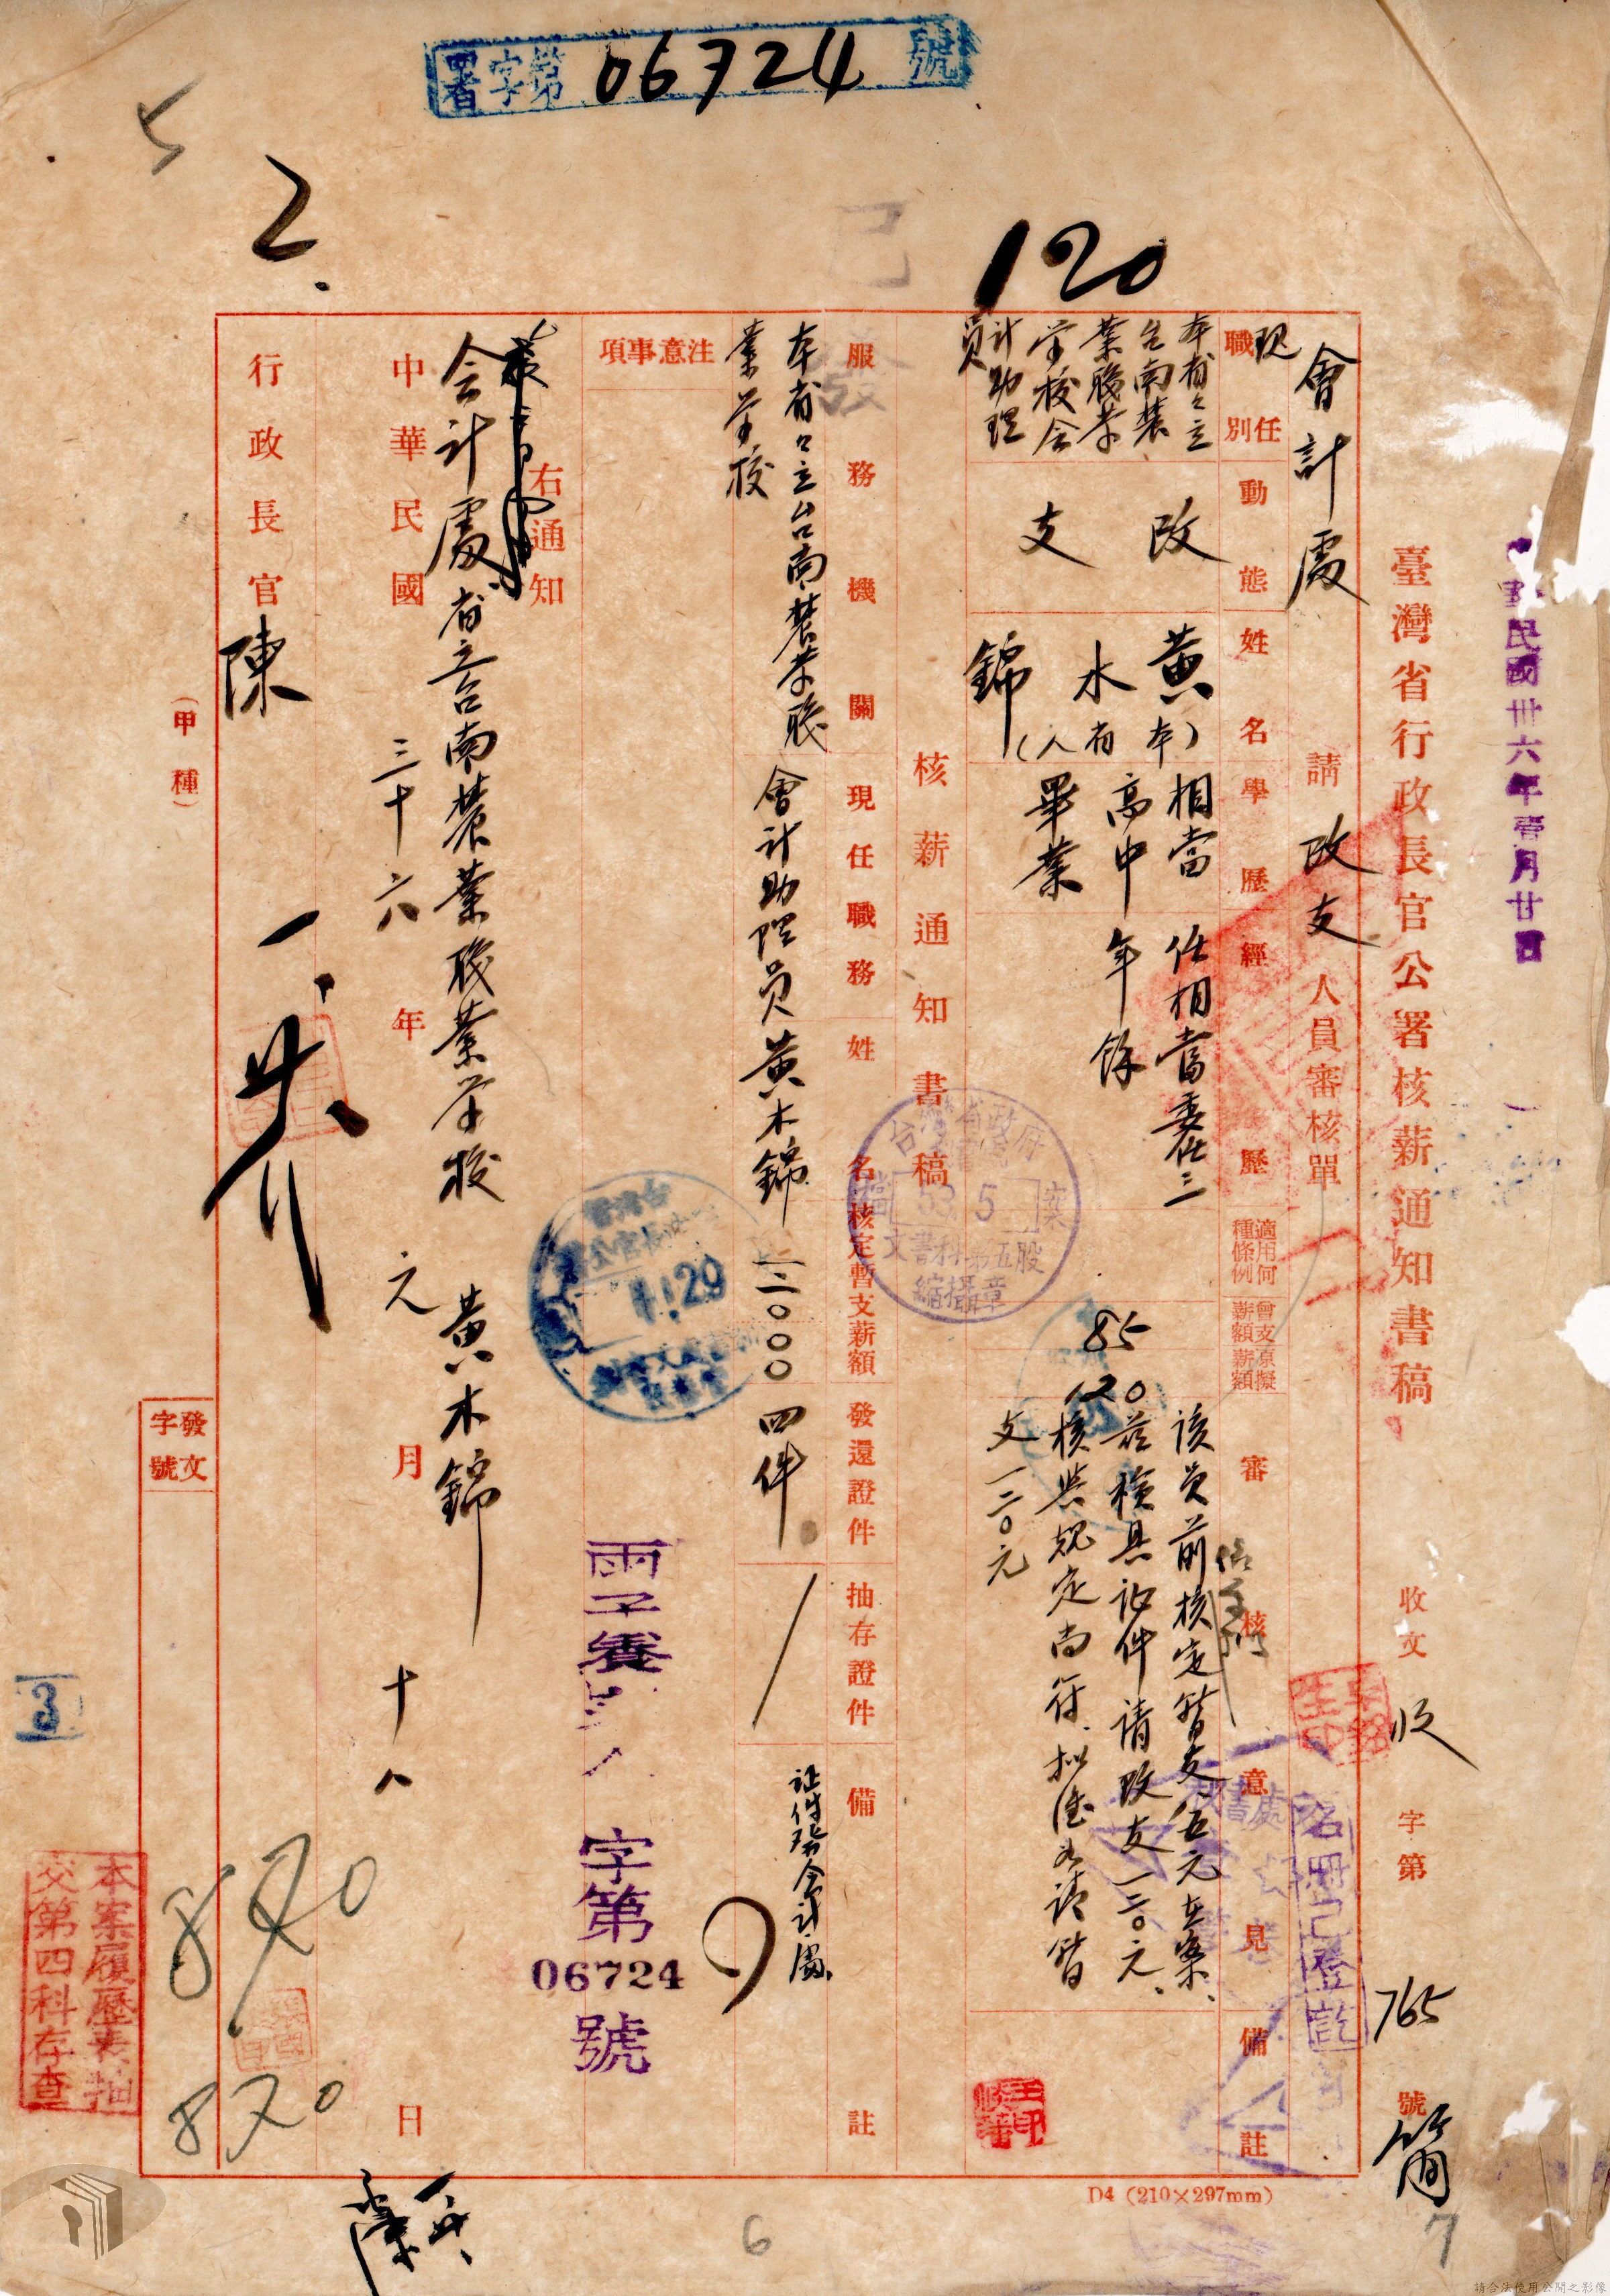 署字第 06724 號
120
2.
5
中華民國卅六年壹月廿四日
臺灣省行政長官公署核薪通知書稿
收文 收 字第 765 號
簡
會計處 請 改支 人員審核單
現任職別
動態
姓名
學歷
經歷
適用何種條例
曾支薪額
原擬薪額
審核意見
備註
本省省立台南農業職業學校會計助理員
改支
黃水錦
(本省人)
相當高中畢業
任相當委任三年餘
85
120
該員前核定暫支八五元在案、
茲檢具証件請改支一二〇元、
核與規定尚符、擬准如請暫
支一二〇元
名冊已登訖
核薪通知書稿
服務機關
現任職務
姓名
核定暫支薪額
發還證件
抽存證件
備註
本省省立台南農業職業學校
會計助理員
黃木錦
一二〇〇〇
四件
証件發會計處
注意事項
台灣省政府
檔案
53. 5
文書科第五股
縮攝章
1.29
字第 06724 號
右通知
会计處 省立台南農業職業学校 黃木錦
中華民國 三十六 年 元 月 十八 日
行政長官 陳
(甲種)
發文字號
870
870
本案履歷表抽
交第四科存查
3
D4 (210×297mm)
6
7
請合法使用公開之影像